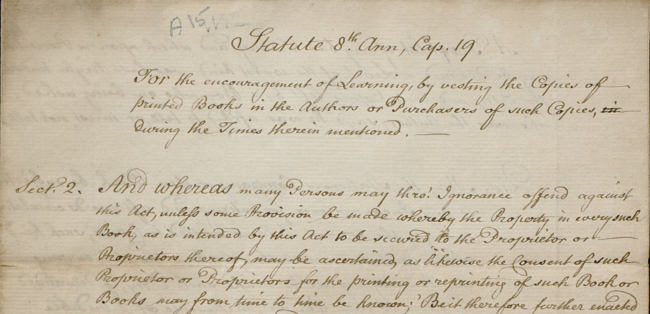 A 15
Statute 8.th Ann, Cap. 19
For the encouragement of Learning, by vesting the Copies of
printed Books in the Authors or Purchasers of such Copies, in
During the Times therein mentioned. —
Sect.n 2. And whereas many Persons may thro' Ignorance offend against
this Act, unless some Provision be made whereby the Property in every such
Book, as is intended by this Act to be secured to the Proprietor or
Proprietors thereof, may be ascertained, as likewise the Consent of such
Proprietor or Proprietors for the printing or reprinting of such Book or
Books may from time to time be known; Be it therefore further enacted